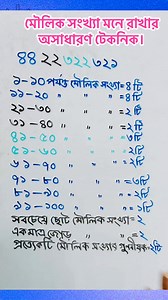 মৌলিক সংখ্যা মনে রাখার
অসাধারণ টেকনিক।
৪৪ ২২ ৩২২ ৩২১
১-১০ পর্যন্ত মৌলিক সংখ্যা=৪টি
১১-২০ " " " =৪টি
২১-৩০ " " " =২টি
৩১-৪০ " " " =২টি
৪১-৫০ " " " =৩টি
৫১-৬০ " " " =২টি
৬১-৭০ " " " =২টি
৭১-৮০ " " " =৩টি
৮১-৯০ " " " =২টি
৯১-১০০ " " " =১টি
সবচেয়ে ছোট মৌলিক সংখ্যা=২
একমাত্র জোড় " " =২
প্রত্যেকটি মৌলিক সংখ্যার গুণনীয়ক-২টি